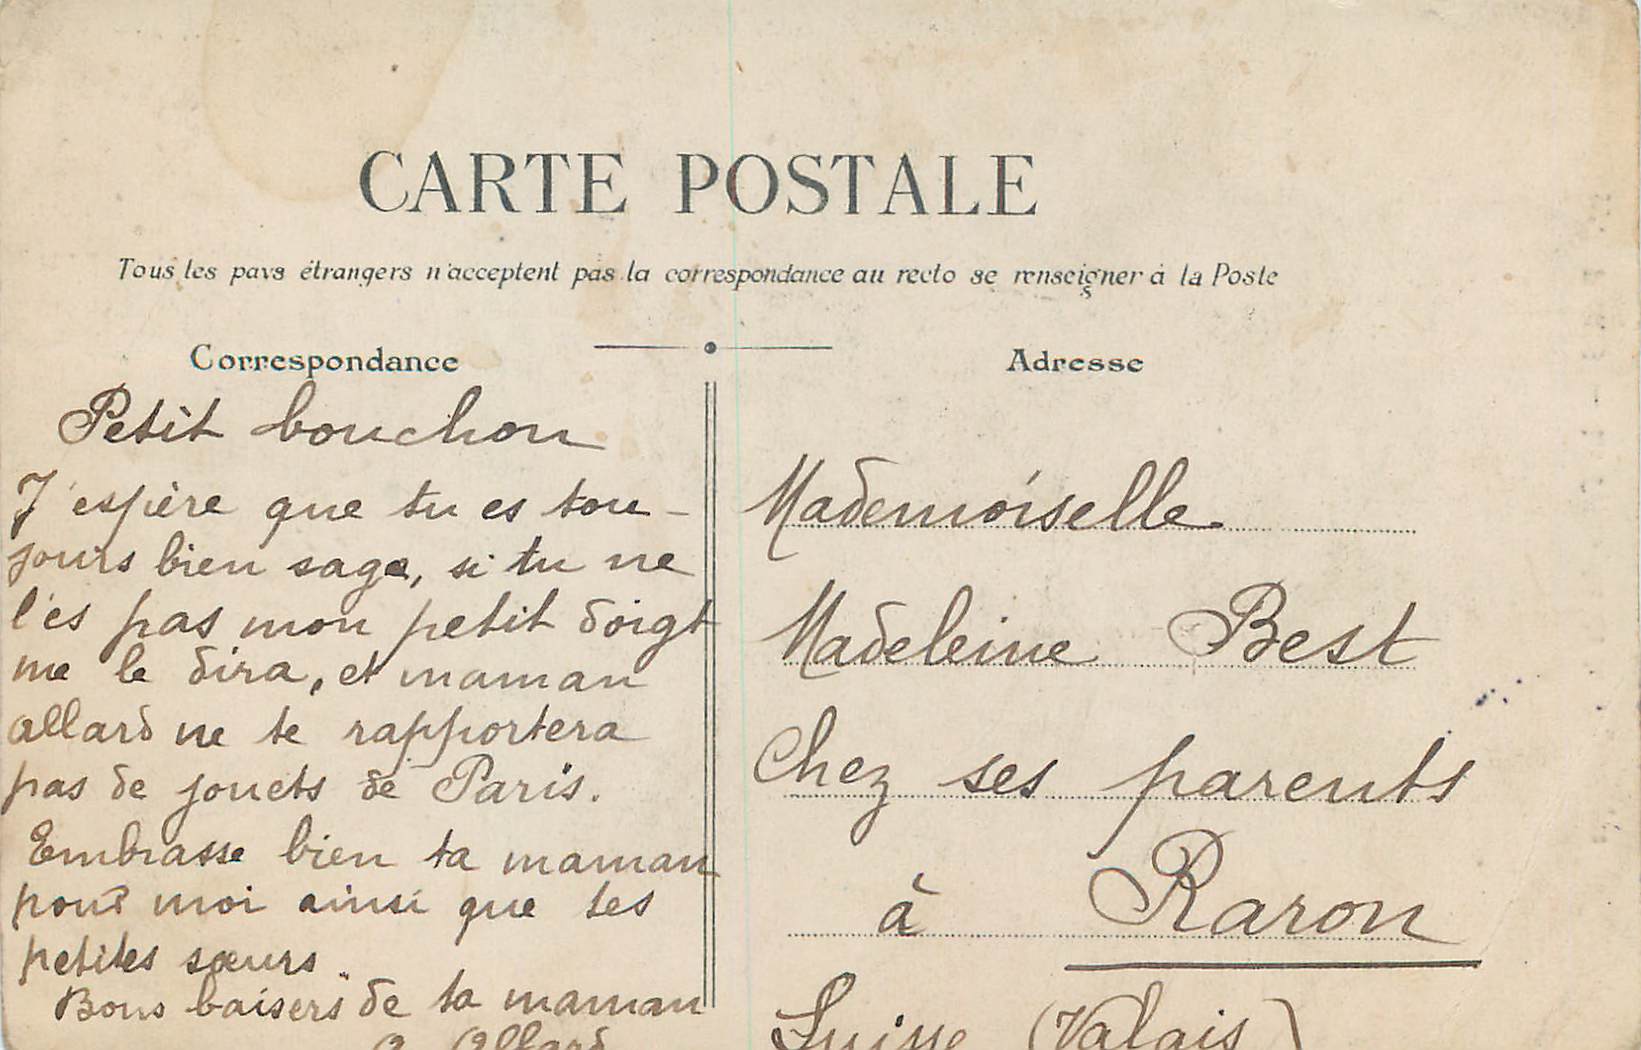 CARTE POSTALE
Tous les pays étrangers n'acceptent pas la correspondance au recto se renseigner à la Poste
Correspondance
Petit bouchon
J'espère que tu es tou-
jours bien sage, si tu ne
l'es pas mon petit doigt
me le dira, et maman
Allard ne te rapportera
pas de jouets de Paris.
Embrasse bien ta maman
pour moi ainsi que tes
petites sœurs.
Bons baisers de ta maman
a Allard
Adresse
Mademoiselle
Madeleine Best
Chez ses parents
à Raron
Suisse (Valais)